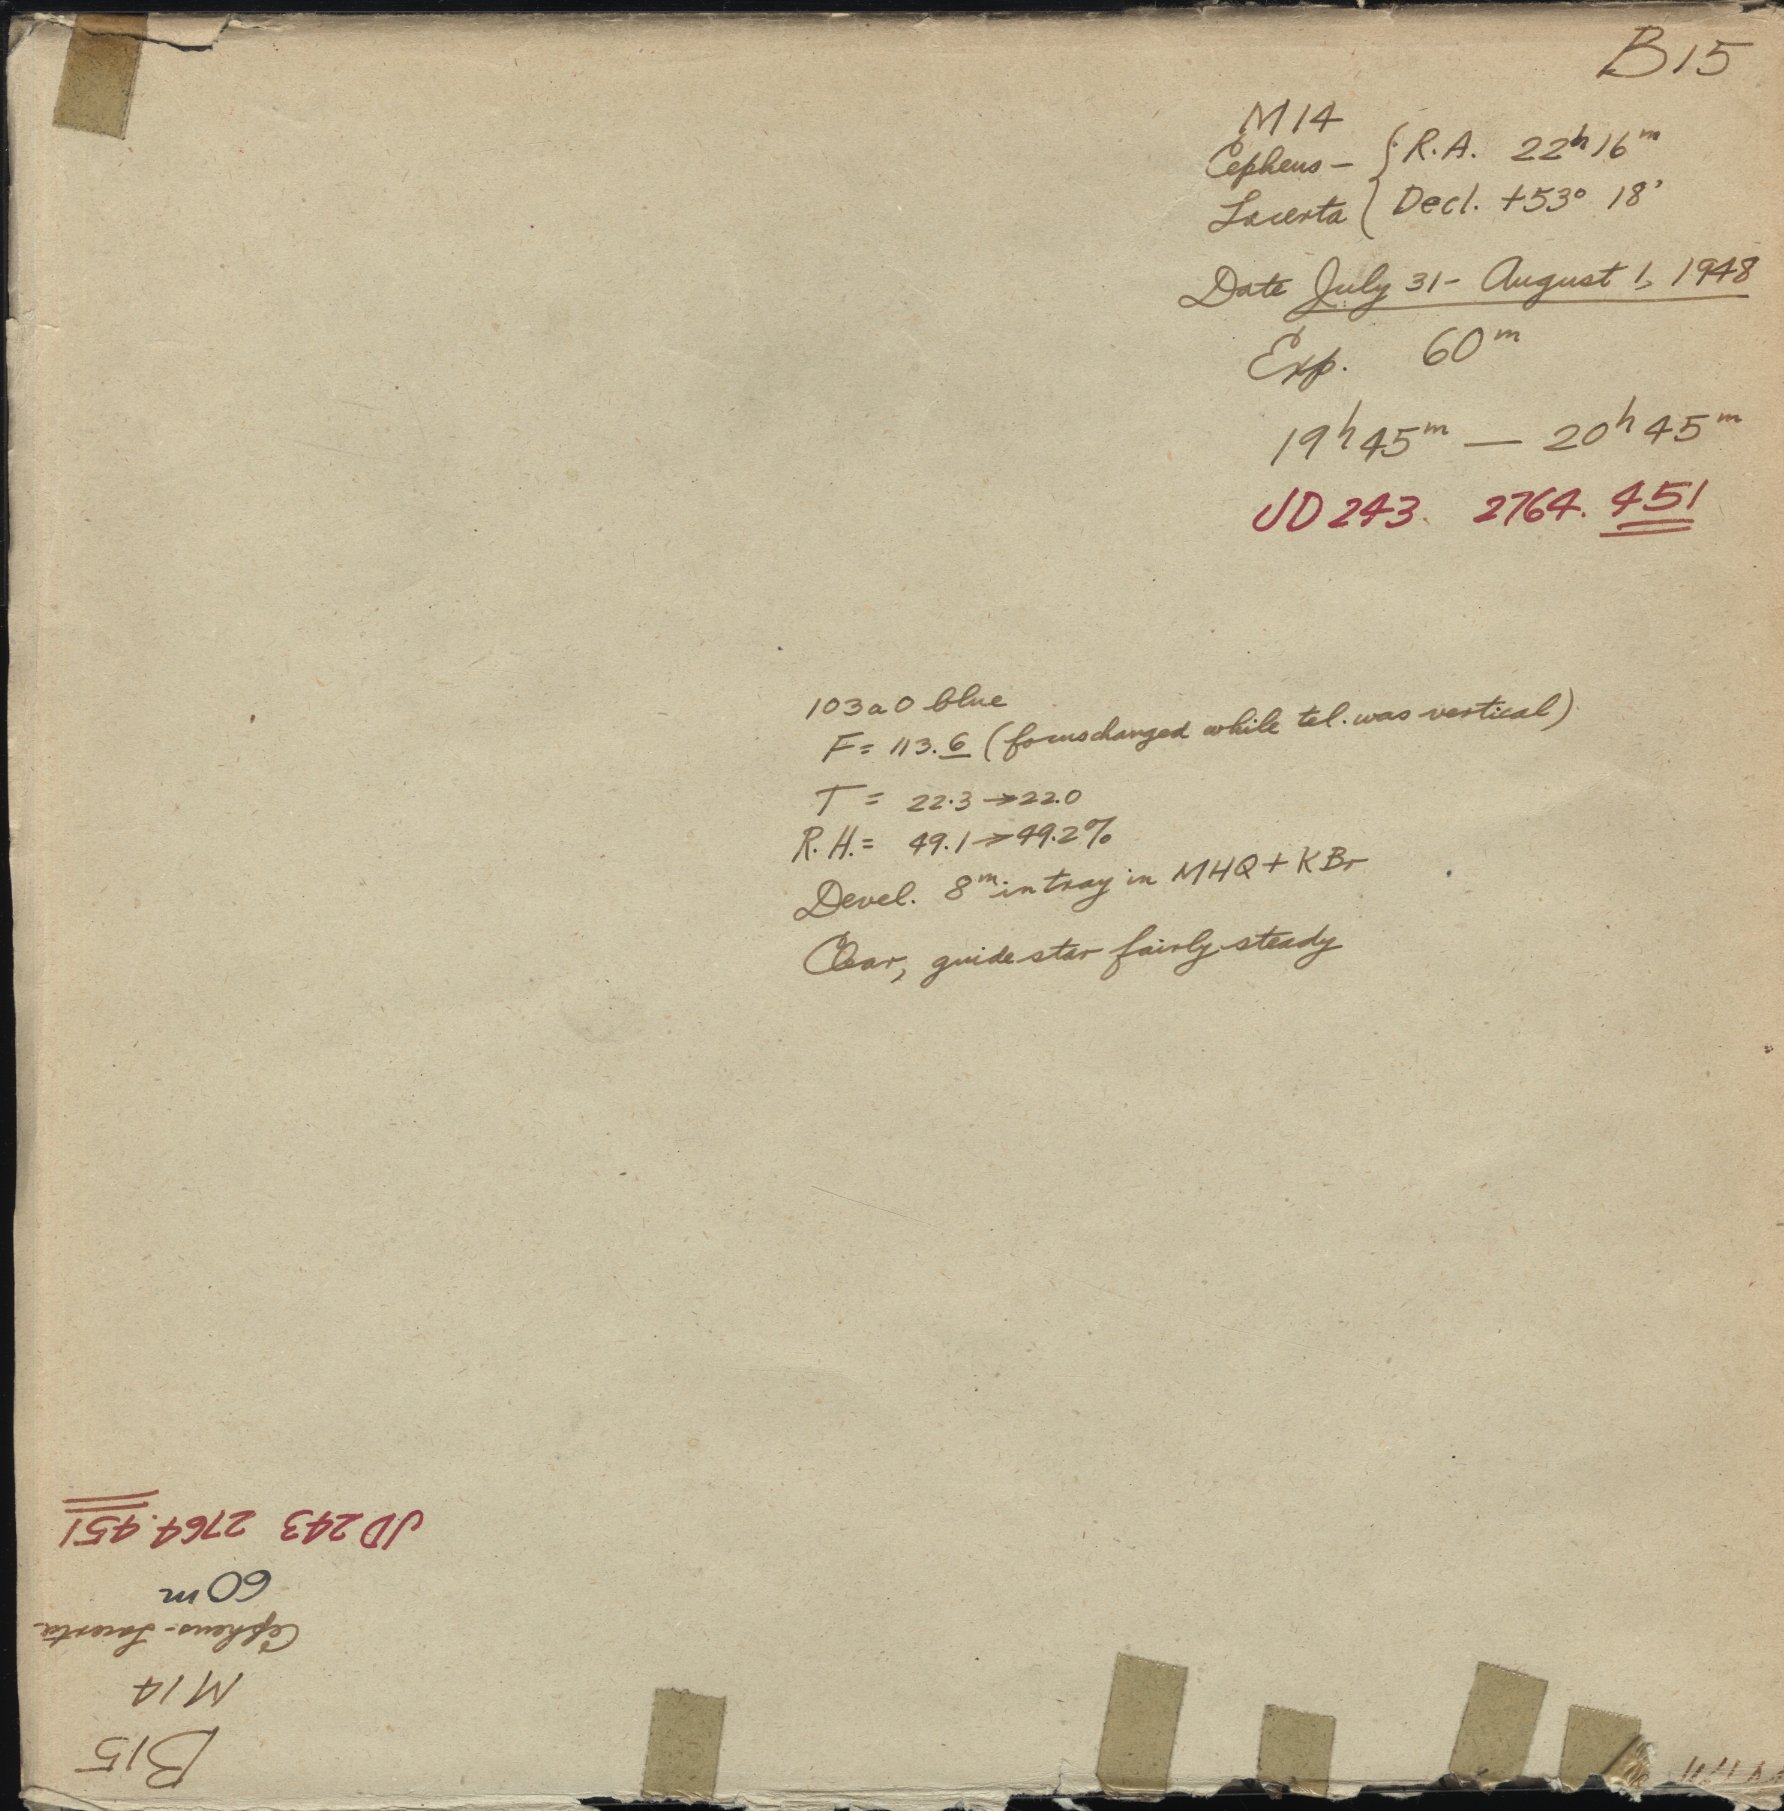 B15
M14
Cepheus - { R.A. 22h 16m
Lacerta { Decl. +53° 18'
Date July 31 - August 1, 1948
Exp. 60m
19h 45m — 20h 45m
JD 243. 2764. 451
103a0 blue
F = 113.6 (focus changed while tel. was vertical)
T = 22.3 → 22.0
R.H. = 49.1 → 49.2%
Devel. 8m in tray in MHQ + KBr
Clear, guide star fairly steady
B15
M14
Cepheus - Lacerta
60m
JD 243 2764. 451